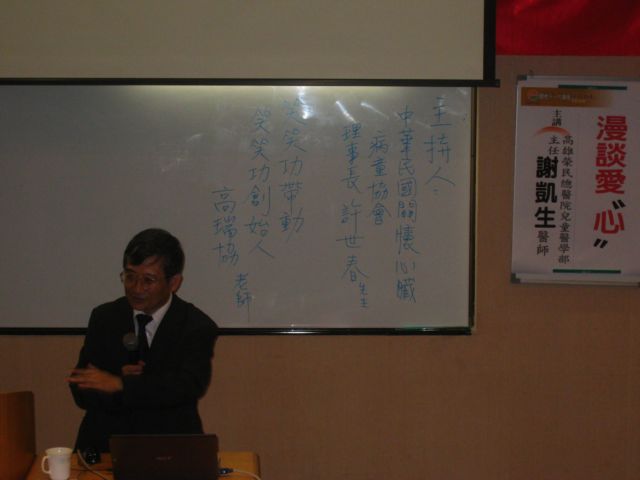 主持人：
中華民國關懷心臟
病童協會
理事長 許世春 先生
笑笑功帶動
笑笑功創始人
高瑞協 老師
漫談愛"心"
主講
高雄榮民總醫院兒童醫學部
主任 謝凱生 醫師